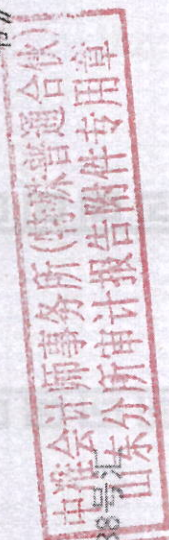 中准会计师事务所(特殊普通合伙)
山东分所审计报告附件专用章
38号汇